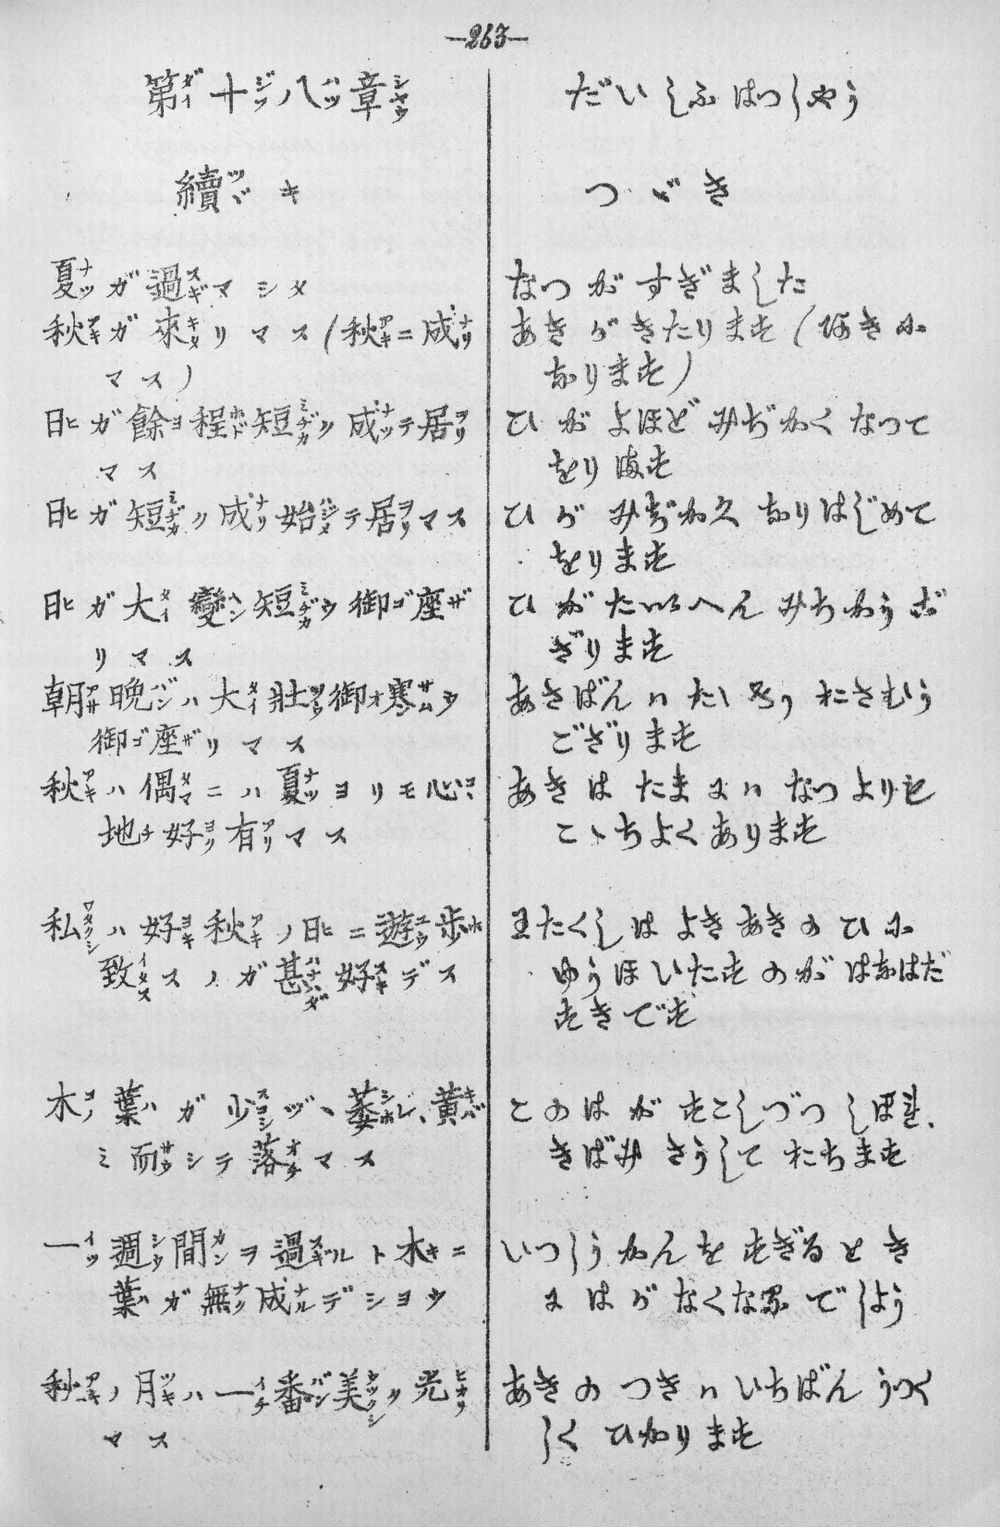 —263—
第十八章
續キ
夏ガ過マシタ
秋ガ來リマス(秋ニ成リ
マス)
日ガ餘程短ク成ッテ居リ
マス
日ガ短ク成リ始テ居マス
日ガ大變短ウ御座
リマス
朝晩ハ大壯御寒ウ
御座リマス
秋ハ偶ニハ夏ヨリモ心
地好ク有マス
私ハ好キ秋ノ日ニ遊歩
致スノガ甚好デス
木ノ葉ガ少シヅヽ萎レ、黄バ
ミ而シテ落マス
一週間ヲ過ルト木ニ
葉ガ無ク成ルデショウ
秋ノ月ハ一番美ク光リ
マス
だいじふはつしやう
つゞき
なつがすぎました
あきがきたります(あきに
なります)
ひがよほどみぢかくなつて
をります
ひがみぢかくなりはじめて
をります
ひがたいへんみぢかうご
ざります
あさばんハたいそうおさむう
ござります
あきはたまにハなつよりも
こゝちよくあります
わたくしはよきあきのひに
ゆうほいたすのがはなはだ
すきです
このはがすこしづつしぼれ、
きばみさうしておちます
いつしうかんをすぎるとき
にはがなくなるでしよう
あきのつきハいちばんうつく
しくひかります